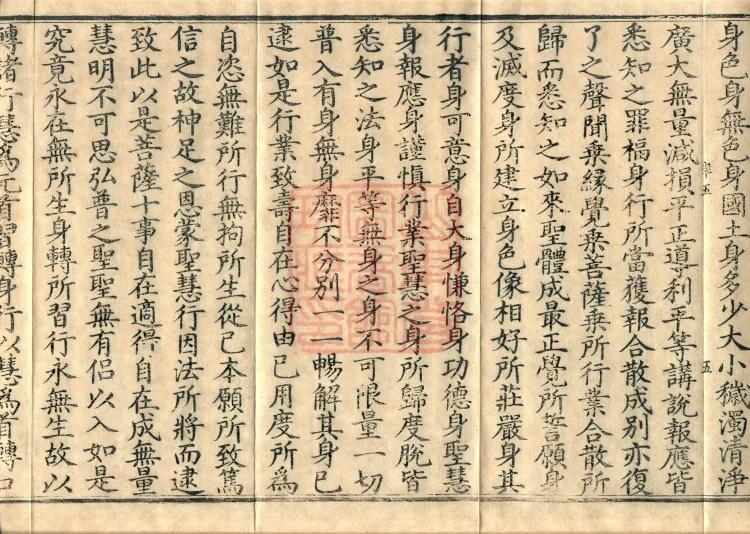 身色身無色身國土身多少大小穢濁清淨
廣大無量減損平正導利平等講說報應皆
悉知之罪福身行所當獲報合散成別亦復
了之聲聞乗緣覺乗菩薩乗所行業合散所
歸而悉知之如來聖體成最正覺所誓願身
及滅度身所建立身色像相好所莊嚴身其
行者身可意身自大身慊恪身功德身聖慧
身報應身謹慎行業聖慧之身所歸度脫皆
悉知之法身平等無身之身不可限量一切
普入有身無身靡不分別一一暢解其身已
逮如是行業致壽自在心得由已用度所為
自恣無難所行無拘所生從已本願所致篤
信之故神足之恩蒙聖慧行因法所將而逮
致此以是菩薩十事自在適得自在成無量
慧明不可思弘普之聖聖無有侶以入如是
究竟永在無所生身轉所習行永無生故以
轉諸行慧為元首習轉身行以慧為首轉口